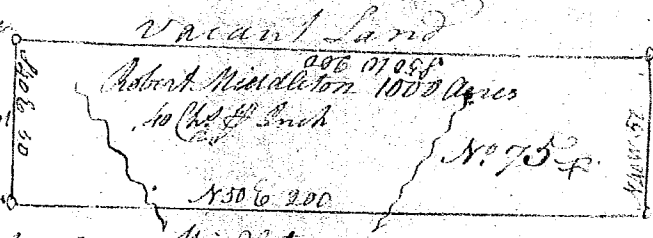 Vacant Land
S50W 200
Robert Middleton 1000 Acres
40 Chs P Inch
S40E 50
No. 75
N40W 51
N50E 200